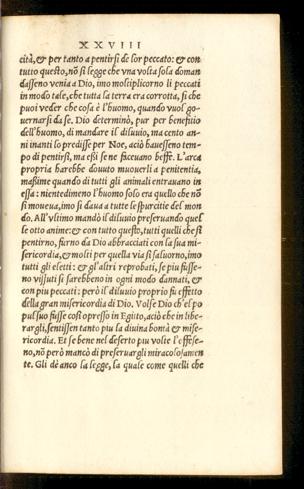 XXVIII
cità, & per tanto a pentirsi de lor peccato: & con
tutto questo, nō si legge che vna volta sola doman
dasseno venia a Dio, imo moltiplicorno li peccati
in modo tale, che tutta la terra era corrotta, si che
puoi veder che cosa è l'huomo, quando vuol go-
uernarsi da se. Dio determinò, pur per benefitio
dell'huomo, di mandare il diluuio, ma cento an-
ni inanti lo predisse per Noe, aciò hauesseno tem-
po di pentirsi, ma essi se ne faceuano beffe. L'arca
propria harebbe douuto muouerli a penitentia,
maßime quando di tutti gli animali entrauano in
essa: nientedimeno l'huomo solo era quello che nō
si moueua, imo si daua a tutte le spurcitie del mon
do. All'vltimo mandò il diluuio preseruando quel
le otto anime: & con tutto questo, tutti quelli che si
pentirno, furno da Dio abbracciati con la sua mi-
sericordia, & molti per quella via si saluorno, imo
tutti gli eletti: & gl'altri reprobati, se piu fusse-
no vissuti si sarebbeno in ogni modo dannati, &
con piu peccati: però il diluuio proprio fu effetto
della gran misericordia di Dio. Volse Dio ch'el po
pul suo fusse cosi opresso in Egitto, aciò che in libe-
rargli, sentissen tanto piu la diuina bontà & mise-
ricordia. Et se bene nel deserto piu volte l'offese-
no, nō però mancò di preseruargli miracolosamen
te. Gli dè anco la legge, la quale come quelli che